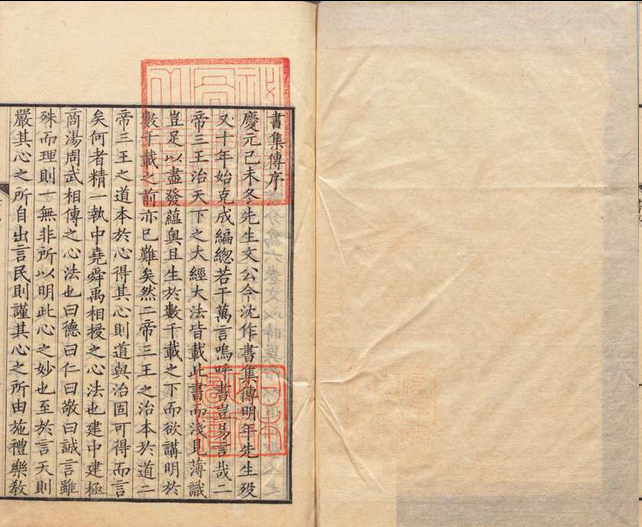 書集傳序
慶元己未冬先生文公令沈作書集傳明年先生歿
又十年始克成編總若干萬言嗚呼書豈易言哉二
帝三王治天下之大經大法皆載此書而淺見薄識
豈足以盡發蘊奧且生於數千載之下而欲講明於
數千載之前亦已難矣然二帝三王之治本於道二
帝三王之道本於心得其心則道與治固可得而言
矣何者精一執中堯舜禹相授之心法也建中建極
商湯周武相傳之心法也曰德曰仁曰敬曰誠言雖
殊而理則一無非所以明此心之妙也至於言天則
嚴其心之所自出言民則謹其心之所由施禮樂教